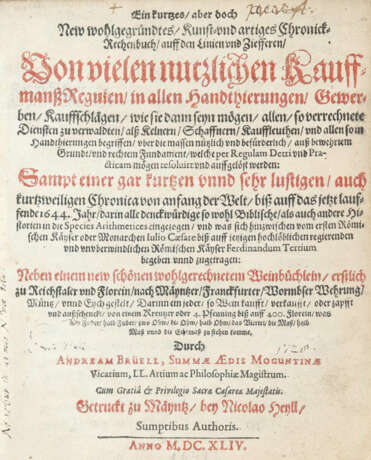 Ein kurzes/ aber doch
New wohlgegründtes/ Kunst und artiges Chronick-
Rechenbuch/ auff den Linien und Ziefferen/
Von vielen nutzlichen Kauff-
manß Reguien/ in allen Handthierungen/ Gewer-
ben/ Kauffschlägen/ wie sie dann seyn mögen/ allen/ so verrechnete
Diensten zu verwaldten/ alß Kelnern/ Schaffnern/ Kauffleuthen/ und allen so in
Handthierungen begriffen/ uber die massen nützlich und befürderlich/ auß bewehrtem
Grundt/ und rechtem Fundament/ welche per Regulam Detri und Pra-
cticam mögen resolvirt und auffgelößt werden:
Sampt einer gar kurtzen unnd sehr lustigen/ auch
kurtzweiligen Chronica von anfang der Welt/ biß auff das jetzt lauf-
fende 1644. Jahr/ darin alle denckwürdige so wohl Biblische/ als auch andere Hi-
storien in die Species Arithmetices eingezogen/ und was sich hinzwischen vom ersten Römi-
schen Käyser oder Monarchen Iulio Cæsare biß auff jetzigen hochlöblichen regierenden
und unvberwindlichen Römischen Käyser Ferdinandum Tertium
begeben unnd zugetragen:
Neben einem new schönen wohlgerechneten Weinbüchlein/ erstlich
zu Reichstaler und Florein/ nach Mäyntzer/ Franckfurter/ Wormbser Wehrung/
Müntz/ unnd Eych gestelt/ Darinn ein jeder/ so Wein kaufft/ verkaufft/ oder zapfft
und außschenckt/ von einem Kreutzer oder 4. Pfenning biß auff 400. Florein/ was
ein Fuder/ halb Fuder/ zwo Ohm/ die Ohm/ halb Ohm/ das Viertel/ die Maß/ halb
Maß unnd die Echtmaß zu stehen komme,
Durch
ANDREAM BRÜELL, SUMMÆ ÆDIS MOGUNTINÆ
Vicarium, LL. Artium ac Philosophiæ Magistrum.
Cum Gratiâ & Privilegio Sacræ Cæsareæ Majestatis.
Getruckt zu Mäyntz/ bey Nicolao Heyll/
Sumptibus Authoris.
ANNO M,DC.XLIV.